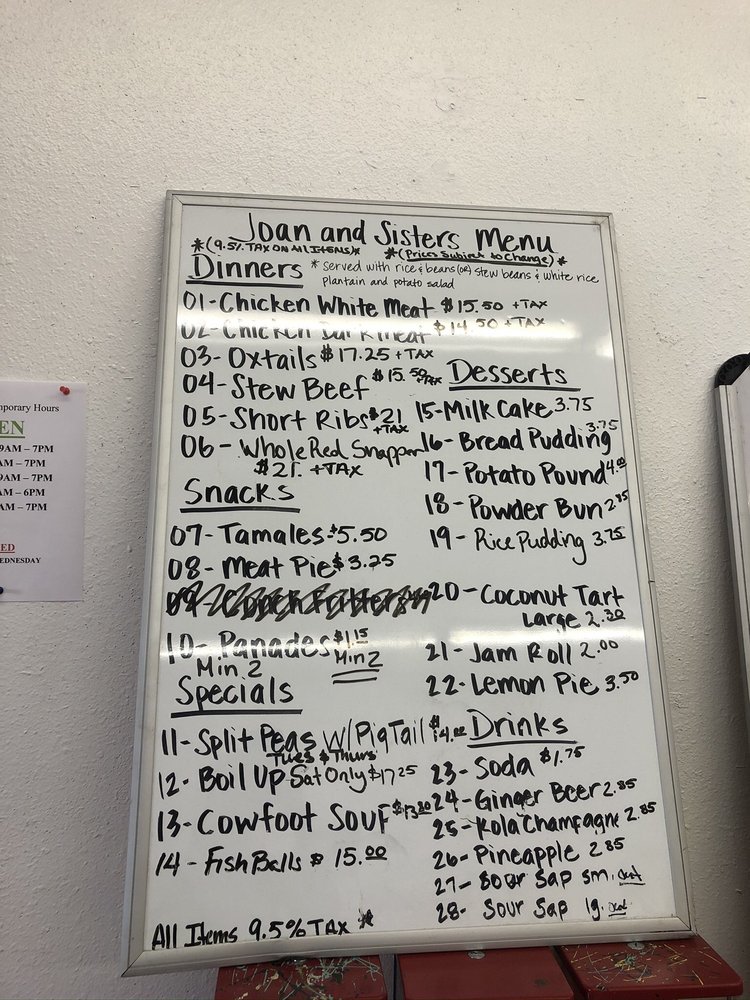 Joan and Sisters Menu
*(9.5% TAX ON All ITEMS)* *(Prices Subject to Change)*
Dinners * served with rice & beans (OR) stew beans & white rice
plantain and potato salad
01-Chicken White Meat $15.50 +TAX
02-Chicken Dark meat $14.50 +TAX
03-Oxtails $17.25 +TAX
04-Stew Beef $15.50 +TAX
05-Short Ribs $21 +TAX
06-Whole Red Snapper
$21. +TAX
Snacks
07-Tamales-$5.50
08-Meat Pie $3.25
09-
10-Panades $1.15
Min 2 Min 2
Specials
11-Split Peas w/Pig Tail
Tues & Thurs
12-Boil Up Sat Only $17.25
13-Cowfoot Souf
14-Fish Balls $15.00
All Items 9.5% TAX *
Desserts
15-Milk Cake 3.75
16-Bread Pudding 3.75
17-Potato Pound 4.00
18-Powder Bun
19-Rice Pudding 3.75
20-Coconut Tart
Large 2.30
21-Jam Roll 2.00
22-Lemon Pie 3.50
Drinks
23-Soda $1.75
24-Ginger Beer 2.85
25-Kola Champagne 2.85
26-Pineapple 2.85
27-Sour Sap sm.
28-Sour Sap lg.
mporary Hours
EN
9AM – 7PM
AM – 7PM
9AM – 7PM
AM – 6PM
AM – 7PM
ED
EDNESDAY